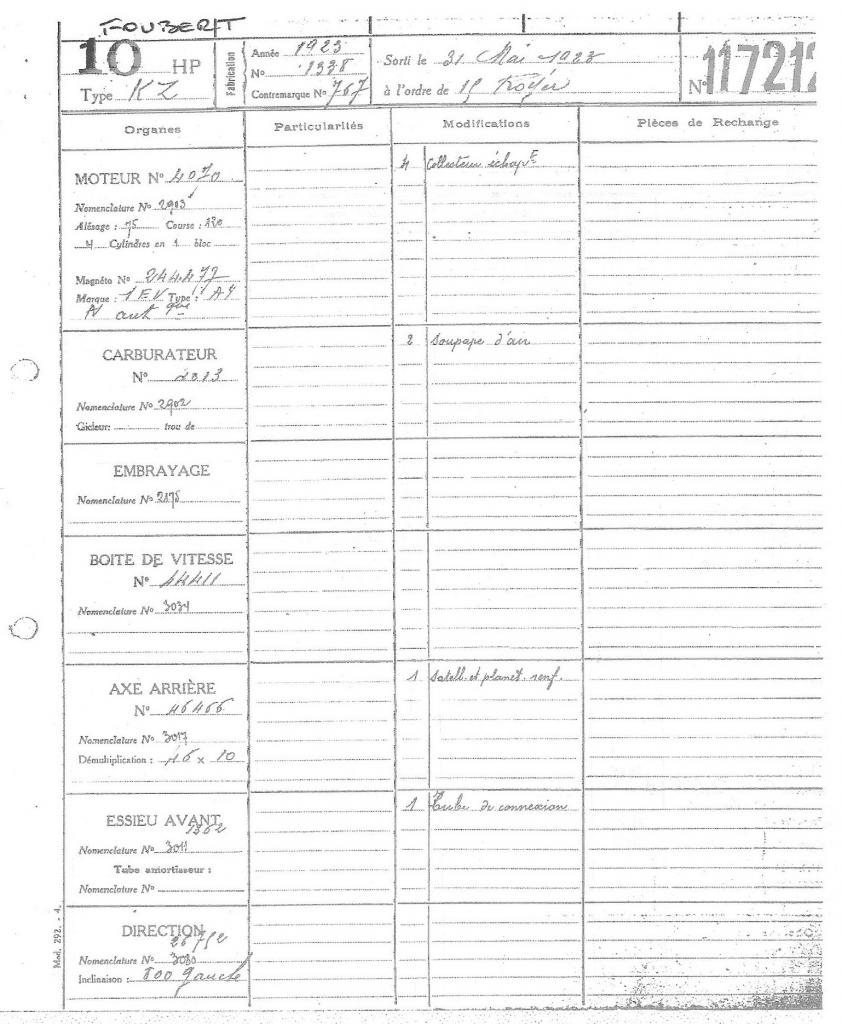 FOUBERT
10 HP
Type KZ
Fabrication
Année 1923
No 1338
Contremarque No 767
Sorti le 31 Mai 1923
à l'ordre de
No 117212
Organes
Particularités
Modifications
Pièces de Rechange
MOTEUR No 4070
Nomenclature No 2903
Alésage : 75 Course : 120
4 Cylindres en 1 bloc
Magnéto No 244.477
Marque : Type :
4 Collecteur échapt
CARBURATEUR
No 2013
Nomenclature No 2902
Gicleur: trou de
2 Soupape d'air
EMBRAYAGE
Nomenclature No 2175
BOITE DE VITESSE
No 44411
Nomenclature No 3034
AXE ARRIÈRE
No 46466
Nomenclature No 3017
Démultiplication : 46 x 10
1 Satell. et planét. renf.
ESSIEU AVANT
1362
Nomenclature No 3011
Tube amortisseur :
Nomenclature No
1 Tube de connexion
DIRECTION
Nomenclature No 3030
Inclinaison : 800 gauche
Mod. 292. - 4.